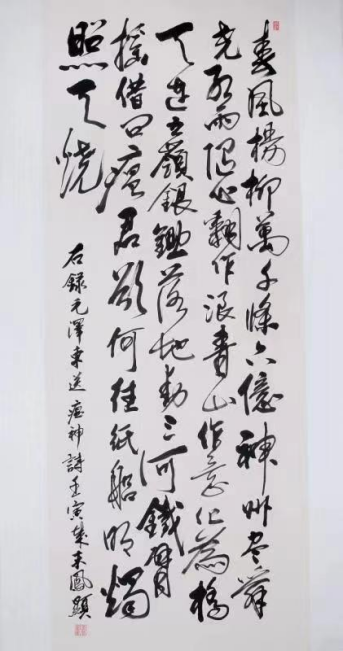 春風楊柳萬千條六億神州尽舜
堯紅雨随心翻作浪青山作意化為橋
天連五嶺銀鋤落地動三河鐵臂
搖借问瘟君欲何往紙船明燭
照天燒
右錄毛澤東送瘟神詩壬寅歲末鳳顯